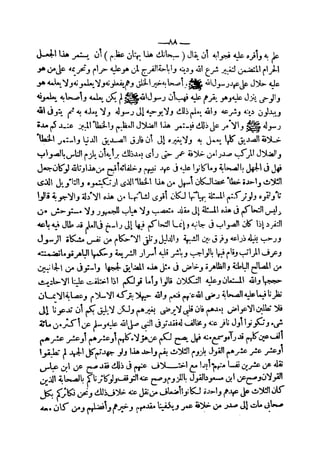 —٨٨—
علم به وأقره عليه فجوابه أن يقال (سبحانك هذا بهتان عظيم) أن يستمر هذا الجعل
الحرام المتضمن لتغيير شرع الله ودينه وإباحة الفرج لمن هو عليه حرام وتحريمه على من هو
عليه حلال على عهد رسول الله ﷺ وأصحابه خير الخلق وهم يفعلونه ولا يعلمونه ولا يعلمه هو
والوحي ينزل عليه وهو يقرهم عليه فهب أن رسول الله ﷺ لم يكن يعلمه وأصحابه يعلمونه
ويبدلون دينه وشرعه والله يعلم ذلك ولا يوحيه إلى رسوله ولا يعلمه به ثم يتوفى الله
رسوله ﷺ والأمر على ذلك فيستمر هذا الضلال العظيم والخطأ المبين عندكم مدة
خلافة الصديق كلها يعمل به ولا يغير إلى أن فارق الصديق الدنيا واستمر الخطأ
والضلال المركب صدرا من خلافة عمر حتى رأى بعد ذلك برأيه أن يلزم الناس بالصواب
فهل في الجهل بالصحابة وما كانوا عليه في عهد نبيهم وخلفائه أقبح من هذا وتالله لو كان جعل
الثلاث واحدة خطأ محضا لكان أسهل من هذا الخطأ الذي ارتكبتموه والتأويل الذي
تأولتموه ولو تركتم المسئلة بهيأتها لكان أقوى لشأنها من هذه الأدلة والأجوبة قالوا
وليس التحاكم في هذه المسئلة إلى مقلد متعصب ولا هياب للجمهور ولا مستوحش من
التفرد إذا كان الصواب في جانبه وإنما التحاكم فيها إلى راسخ في العلم قد طال فيه باعه
ورحب بنيله ذراعه وفرق بين الشبهة والدليل وتلقى الأحكام من نفس مشكاة الرسول
وعرف المراتب وقام فيها بالواجب وباشر قلبه أسرار الشريعة وحكمها الباهرة وما تضمنته
من المصالح الباطنة والظاهرة وخاض في مثل هذه المضايق لججها واستوفى من الجانبين
حججها والله المستعان وعليه التكلان قالوا وأما قولكم إذا اختلفت علينا الأحاديث
نظرنا فيما عليه الصحابة رضي الله عنهم فنعم والله وحيهلا بيرك الاسلام وعصابة الايمان
فلا تطلب الأعواض بعدهم فان قلبي لا يرضى بغيرهم ولكن لا يليق بكم أن تدعونا إلى
شيء وتكونوا أول نافر عنه ومخالف له فقد توفي النبي صلى الله عليه وسلم عن أكثر من مائة
ألف عين كلهم قد رآه وسمع منه فهل يصح لكم عن هؤلاء كلهم أو عشرهم أو عشر عشرهم
أو عشر عشر عشرهم القول بلزوم الثلاث بفم واحد هذا ولو جهدتم كل الجهد لم تطيقوا
نقله عن عشرين نفسا منهم أبدا مع اختلاف عنهم في ذلك فقد صح عن ابن عباس
القولان وصح عن ابن مسعود القول باللزوم وصح عنه التوقف ولو كاثرناكم بالصحابة الذين
كان الثلاث على عهدهم واحدة لكانوا أضعاف من نقل عنه خلاف ذلك ونحن نكاثركم بكل
صحابي مات إلى صدر من خلافة عمر ويكفينا مقدمهم وخيرهم وأفضلهم ومن كان معه